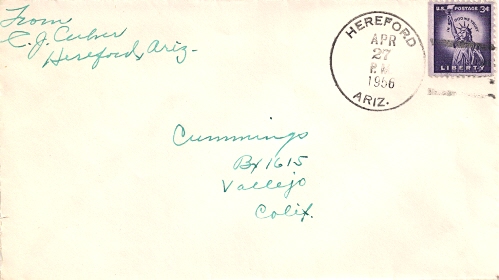 From
C. J. Culver
Hereford, Ariz.
HEREFORD
APR
27
P.M.
1956
ARIZ.
U.S. POSTAGE 3¢
IN GOD WE TRUST
LIBERTY
Cummings
Bx 1615
Vallejo
Calif.